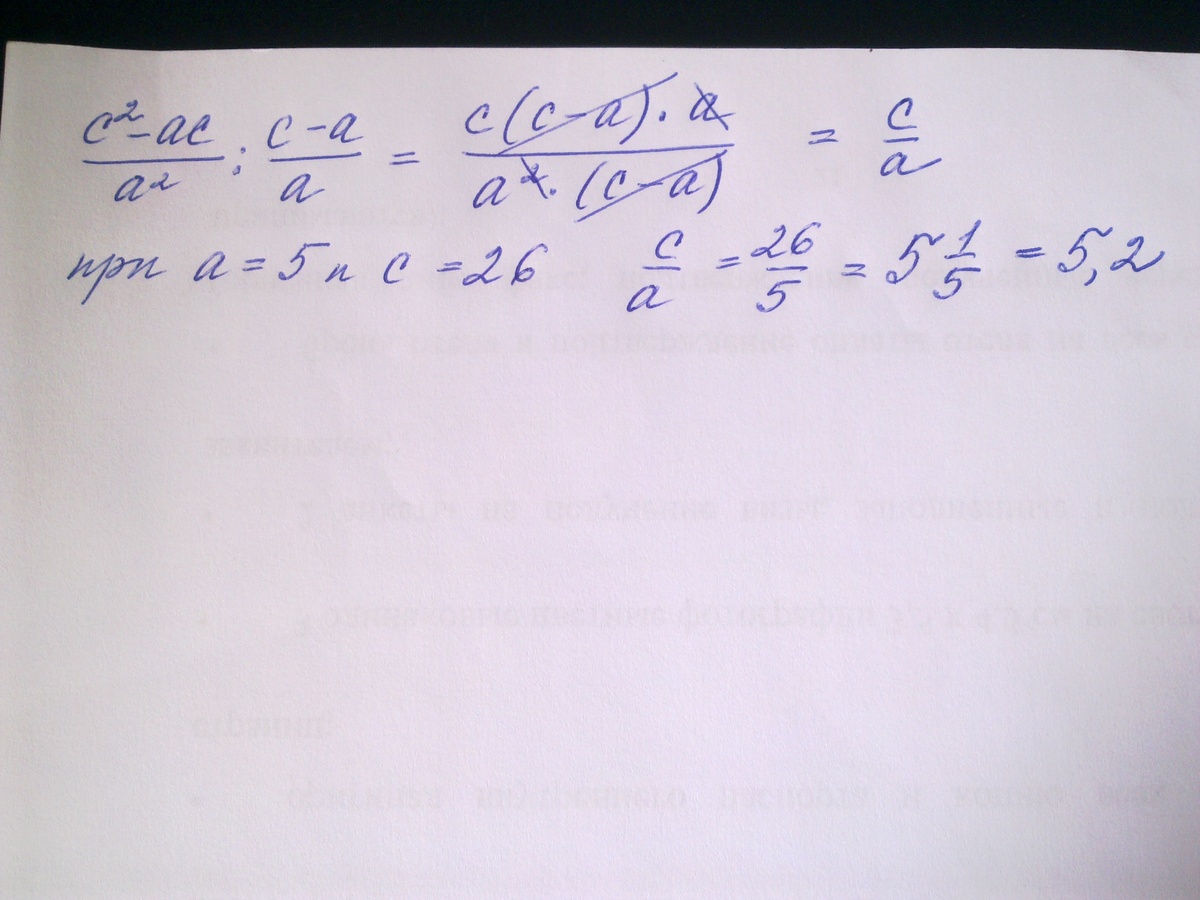 c²-ac/a² : c-a/a = c(c-a)·a/a²·(c-a) = c/a
при a=5 и c=26 c/a = 26/5 = 5 1/5 = 5,2